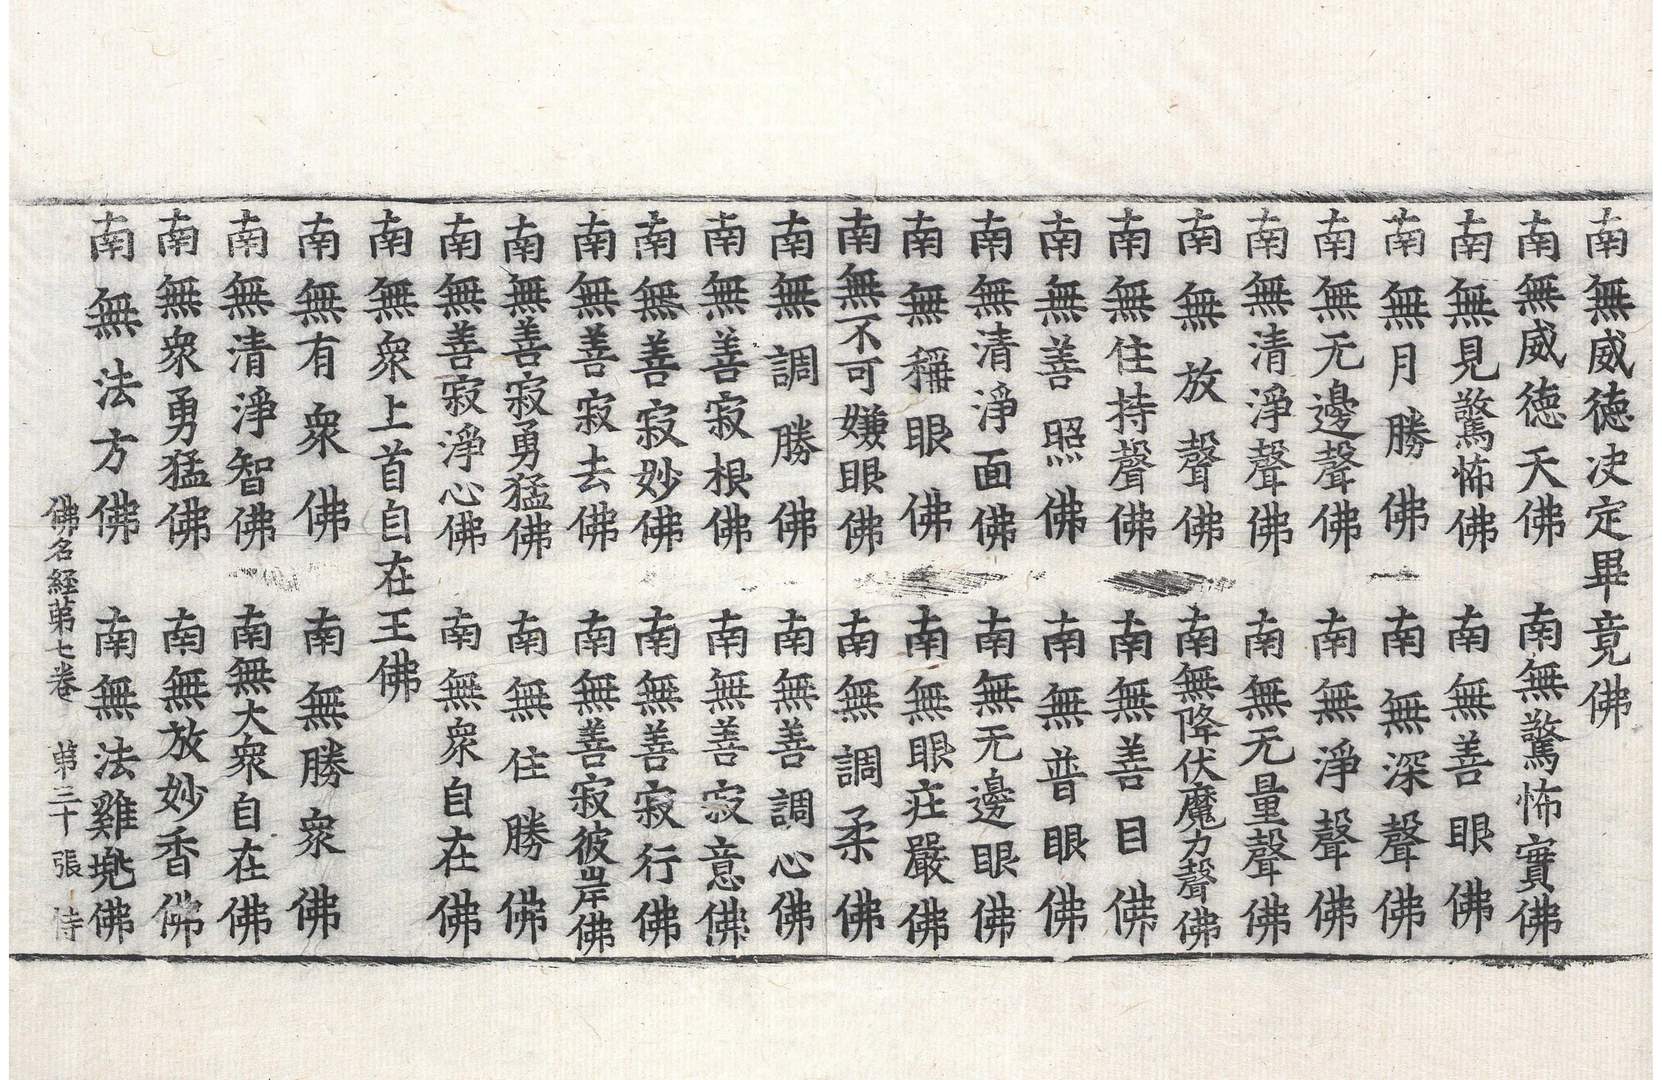 南無威德决定畢竟佛
南無威德天佛　南無驚怖實佛
南無見驚怖佛　南無善眼佛
南無月勝佛　南無深聲佛
南無无邊聲佛　南無淨聲佛
南無清淨聲佛　南無无量聲佛
南無放聲佛　南無降伏魔力聲佛
南無住持聲佛　南無善目佛
南無善照佛　南無普眼佛
南無清淨面佛　南無无邊眼佛
南無稱眼佛　南無眼疘嚴佛
南無不可嫌眼佛　南無調柔佛
南無調勝佛　南無善調心佛
南無善寂根佛　南無善寂意佛
南無善寂妙佛　南無善寂行佛
南無善寂去佛　南無善寂彼岸佛
南無善寂勇猛佛　南無住勝佛
南無善寂淨心佛　南無衆自在佛
南無衆上首自在王佛
南無有衆佛　南無勝衆佛
南無清淨智佛　南無大衆自在佛
南無衆勇猛佛　南無放妙香佛
南無法方佛　南無法雞兠佛
佛名経第七卷　第三十張　侍